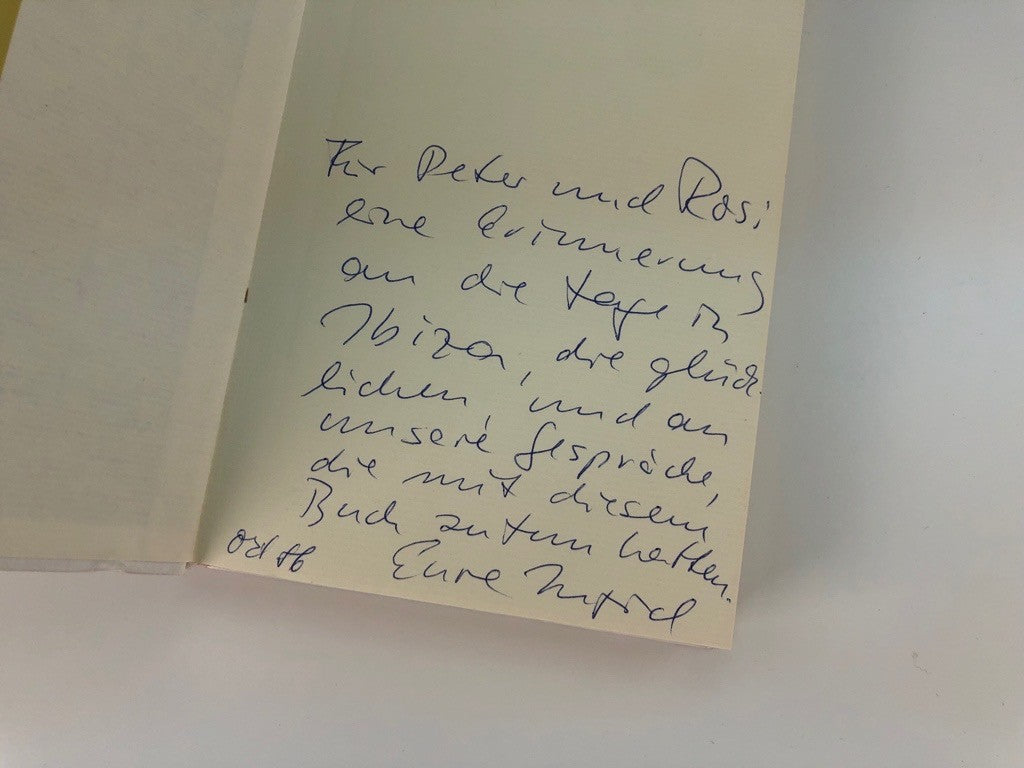 Für Peter und Rosi
eine Erinnerung
an die Tage in
Ibiza, die glück-
lichen, und an
unsere Gespräche,
die mit diesem
Buch zutun hatten.
Eure Ingrid